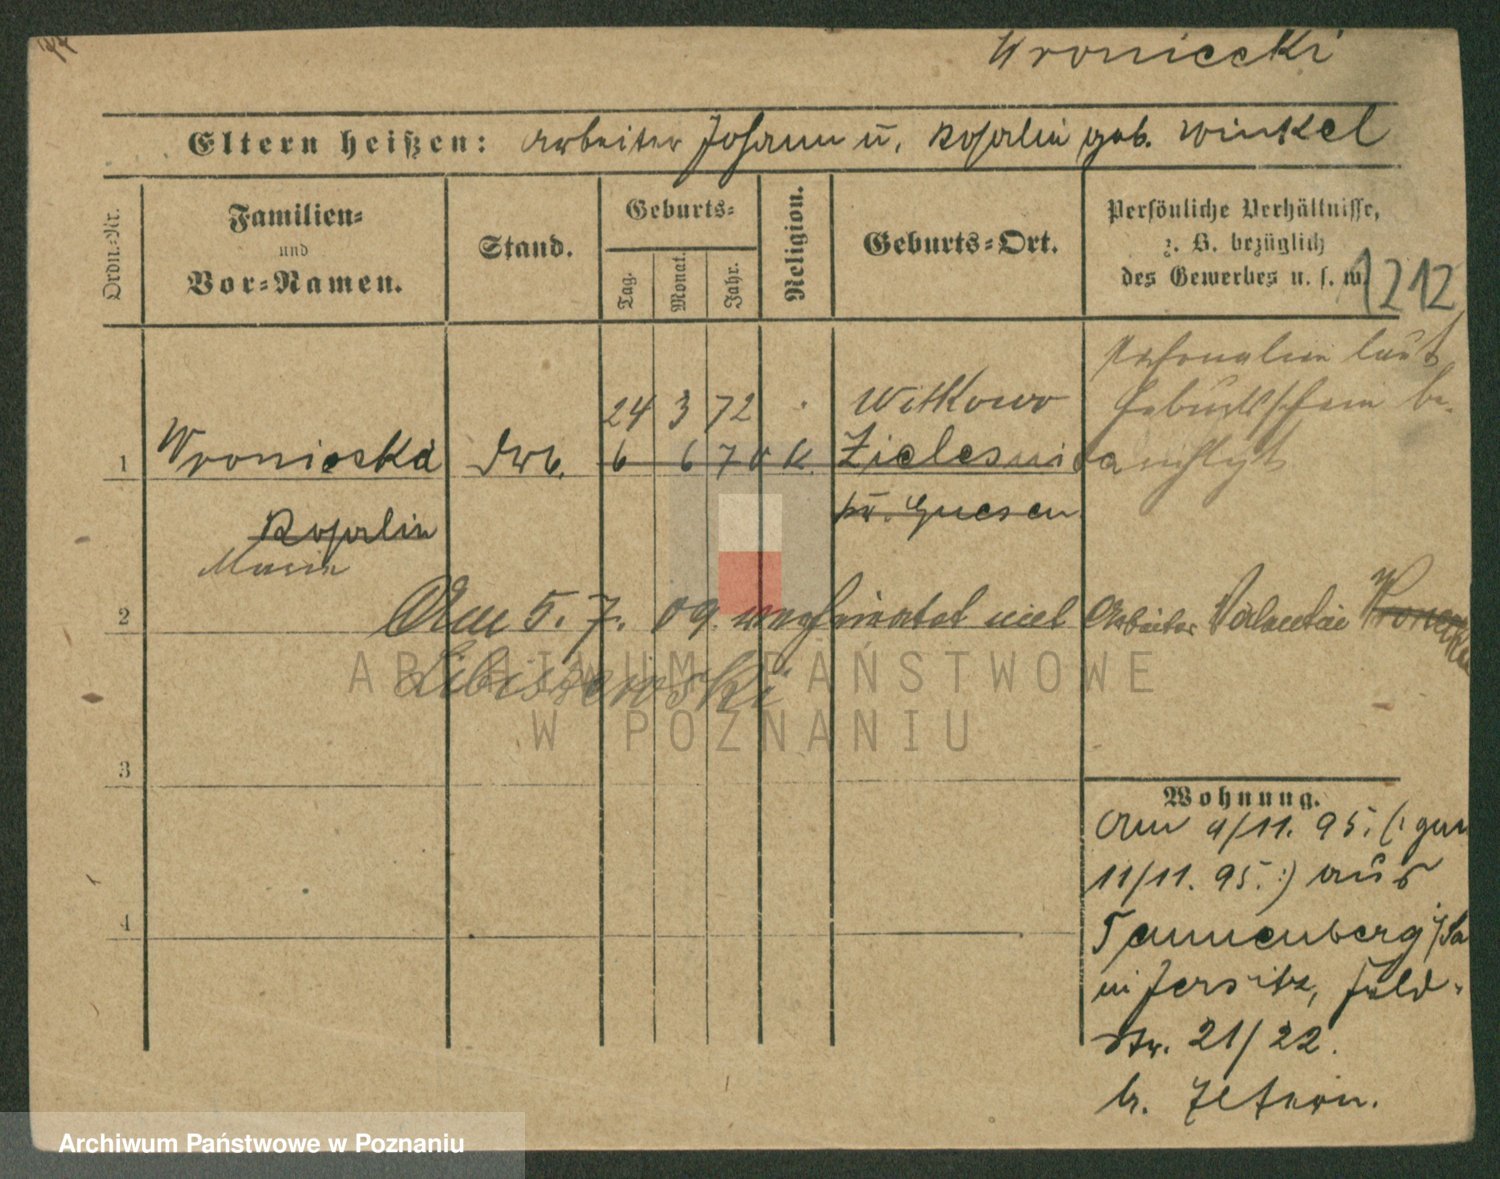 Wroniecki
Eltern heißen: Arbeiter Johann u. Rosalie geb. Winkel
Ordn.-Nr.
Familien-
und
Vor-Namen.
Stand.
Geburts-
Tag.
Monat.
Jahr.
Religion.
Geburts-Ort.
Persönliche Verhältnisse,
z. B. bezüglich
des Gewerbes u. s. w.
1212
Personalien laut
Geburtsschein be-
richtigt
24 3 72 Witkowo
1 Wroniecka Arb. 6 6 70 k. Zielesnica
kr. Gnesen
Rosalie
Marie
2 Am 5. 7. 09. verheiratet mit Arbeiter Valentin
Libiszewski
3
4
Wohnung.
Am 4/11. 95. (: gem
11/11. 95. :) aus
Tannenberg
in Jersitz, Feld-
str. 21/22.
b.
ARCHIWUM PAŃSTWOWE
W POZNANIU
Archiwum Państwowe w Poznaniu